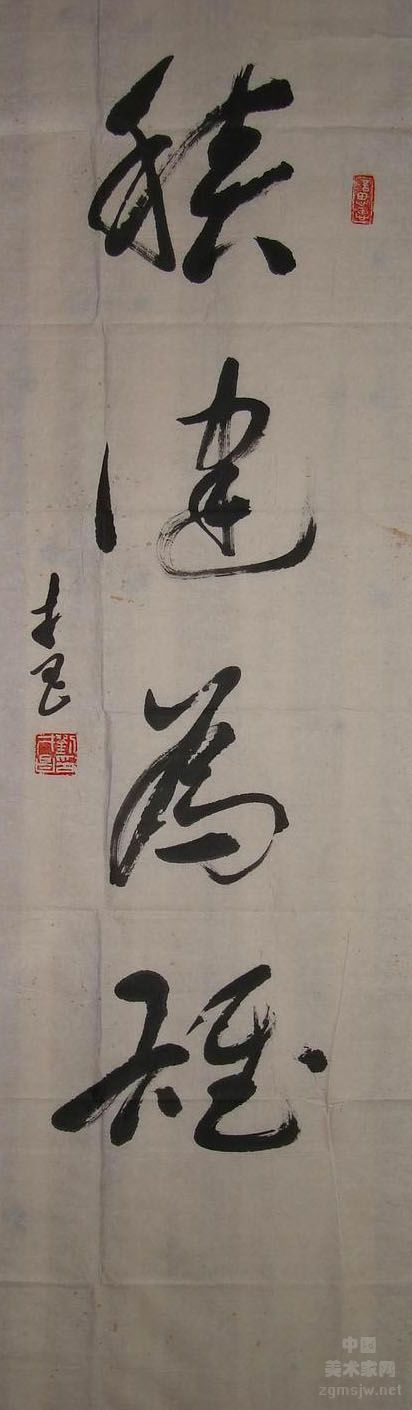 積健為雄
中国
美术家网
zgmsjw.net